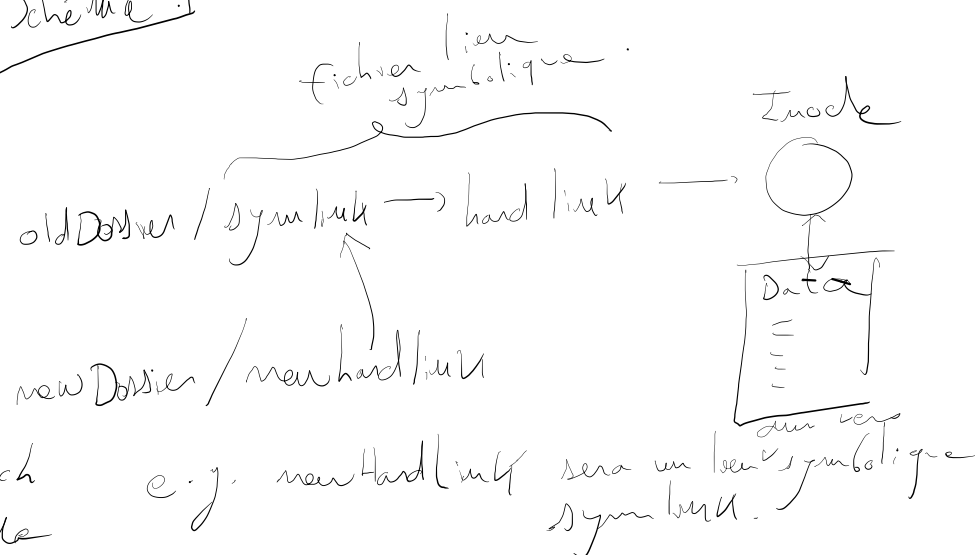 Schéma :
fichier lien
symbolique.
Inode
oldDossier/symlink → hard link →
Data
newDossier/newhardlink
dur vers
ch e.g. newHardLink sera un lien symbolique
symlink.